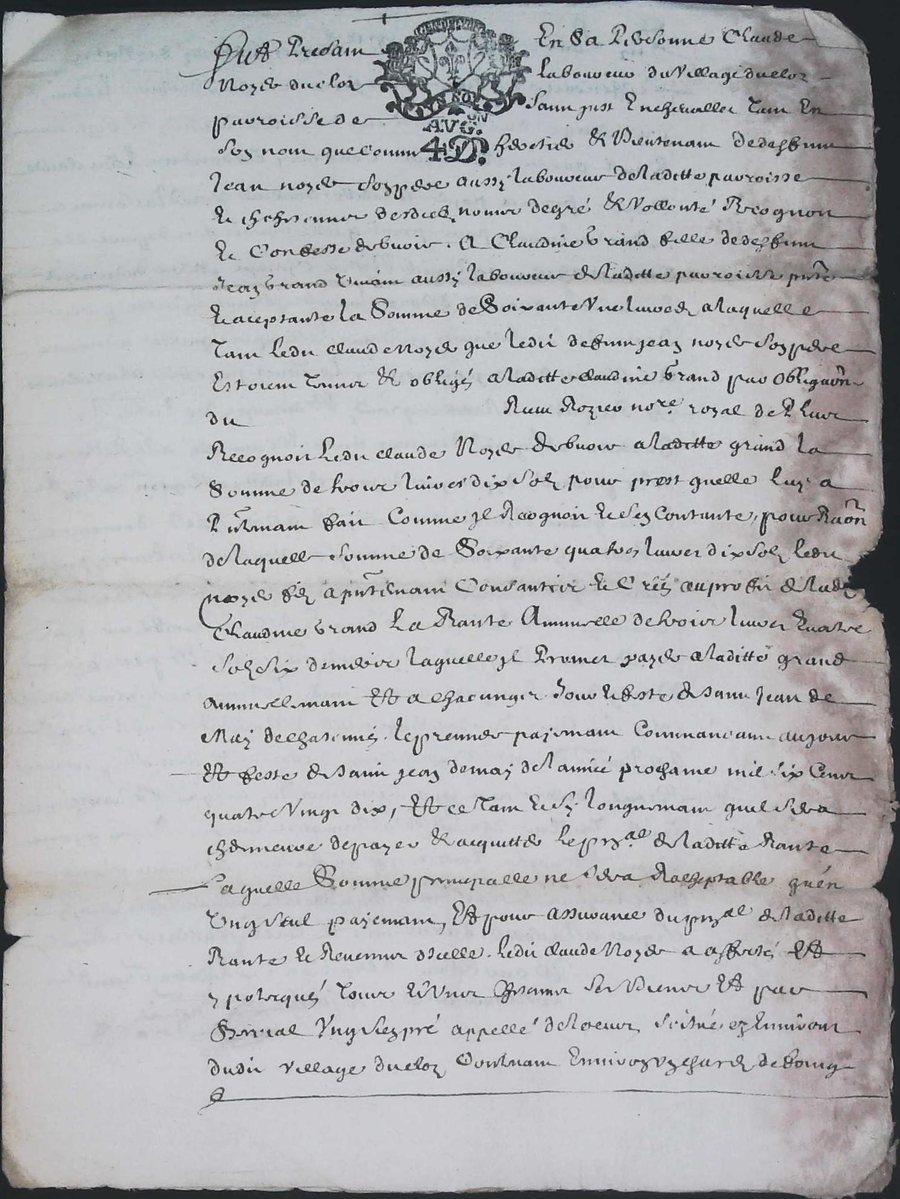 Fut Presant En Sa Personne Claude
Noyer du clos laboureur du village du clos
parroisse de Saint just En chevallet Tant En
AVG.ON
4D.
Son nom que comme heretier Et Bientenant de deffunt
Jean noyer son pere aussy laboureur de laditte parroisse
Et cheherinner desdicts nomer degré Et vollonté Recognoit
Et Confesse debvoir A Claudine Grand fille de deffunt
Jean Grand vivant aussy laboureur de laditte parroisse pnte
Et aceptante la Somme de Soixante Une livres a laquelle
Tant Ledit Claude Noyer que ledit deffunt jean noyer son pere
Estoient tenus Et obligés a laditte Claudine Grand par obligaôn
du Receu Rozier nore. royal de
Recognoit Ledit claude Noyer debvoir a laditte grand la
Somme de trois livres dix solz pour prest quelle luy a
Pntemant fait Comme Jl Recognoit Et sen Contante, pour Raôn
de laquelle somme de Soixante quatre livres dix solz ledit
noyer a pntemant Constantier Et Créé au proffit de lad
Claudine Grand La Rante Annuelle de trois livres quatre
Solz six deniers laquelle Jl Promet payer a laditte grand
Annuellemant Et a chacung jour Et feste de Saint Jean de
May de chasenne, le premier payemant Commancant au jour
Et feste de Saint jean de may de lannée prochaine mil six Cent
quatre Vingt dix, Et ce Tant Et Sy longuemant quil sera
de payer Et acquitter le pnal de laditte Rante
Laquelle Somme principalle ne sera Racheptable quen
Ung Seul payemant, Et pour assurance du pnal de laditte
Rante Et Revenus dicelle Ledit claude Noyer a affecté Et
ypotequé Tous Et Uns Chascuns ses Biens Et par
Special Ung sien pré appellé de Situé Ez Environs
dudit village du cloz Contenant Environ Ung char de foing